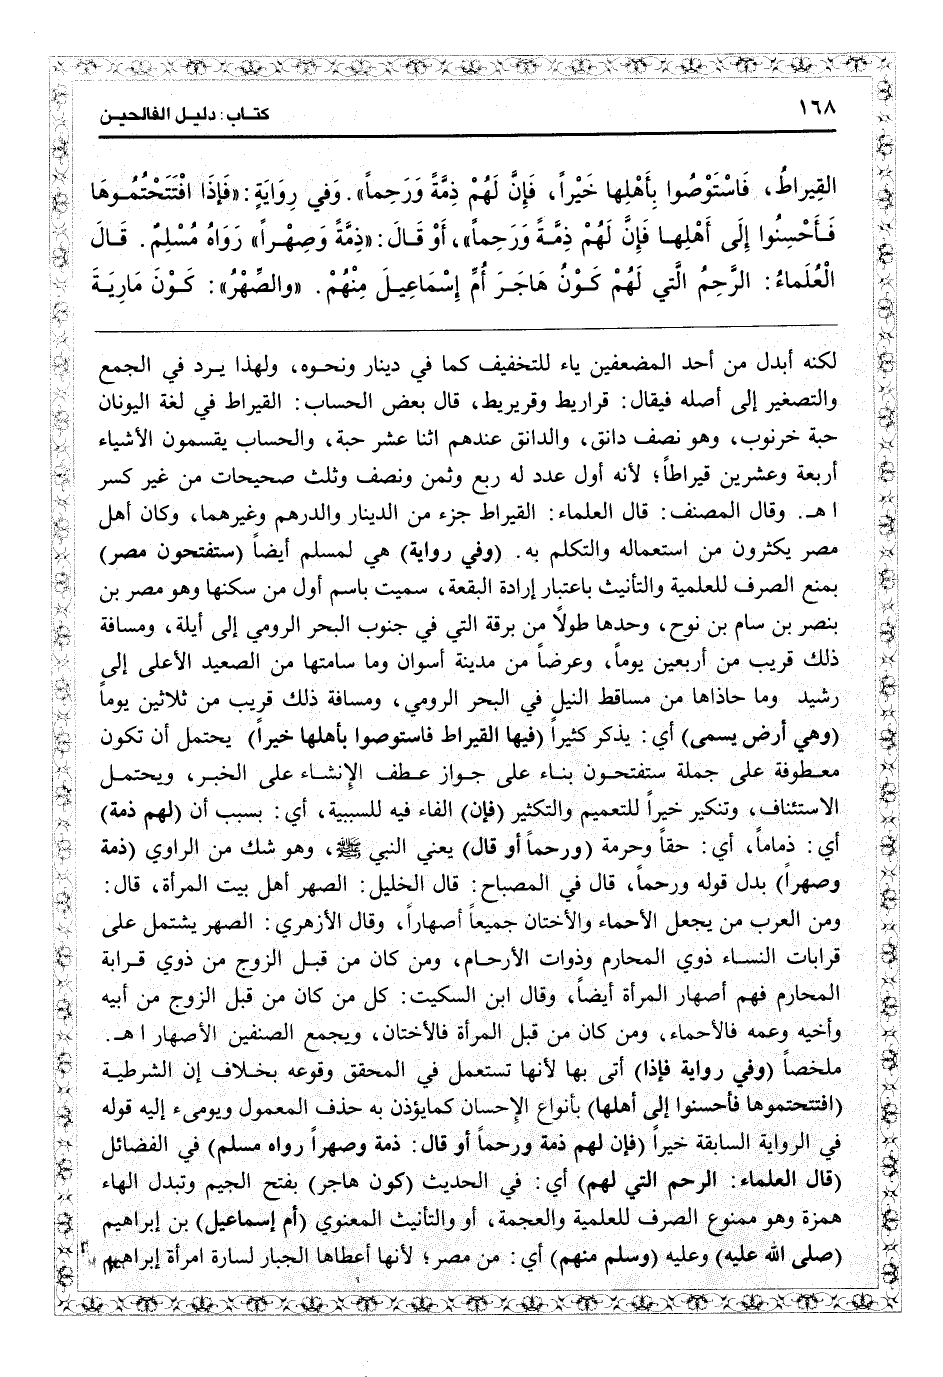 ١٦٨
كتاب: دليل الفالحين
القِيراطُ، فَاسْتَوْصُوا بِأَهْلِها خَيْراً، فَإِنَّ لَهُمْ ذِمَّةً وَرَحِماً». وَفي رِوايَةٍ: «فَإِذَا افْتَتَحْتُمُوهَا
فَأَحْسِنُوا إِلَى أَهْلِهِا فَإِنَّ لَهُمْ ذِمَّةً وَرَحِماً»، أَوْ قَالَ: «ذِمَّةً وَصِهْراً» رَوَاهُ مُسْلِمٌ. قَالَ
الْعُلَماءُ: الرَّحِمُ الَّتي لَهُمْ كَوْنُ هَاجَرَ أُمِّ إِسْمَاعِيلَ مِنْهُمْ. «والصِّهْرُ»: كَوْنَ مَارِيَةَ
لكنه أبدل من أحد المضعفين ياء للتخفيف كما في دينار ونحوه، ولهذا يرد في الجمع
والتصغير إلى أصله فيقال: قراريط وقريريط، قال بعض الحساب: القيراط في لغة اليونان
حبة خرنوب، وهو نصف دانق، والدانق عندهم اثنا عشر حبة، والحساب يقسمون الأشياء
أربعة وعشرين قيراطاً؛ لأنه أول عدد له ربع وثمن ونصف وثلث صحيحات من غير كسر
ا هـ. وقال المصنف: قال العلماء: القيراط جزء من الدينار والدرهم وغيرهما، وكان أهل
مصر يكثرون من استعماله والتكلم به. (وفي رواية) هي لمسلم أيضاً (ستفتحون مصر)
بمنع الصرف للعلمية والتأنيث باعتبار إرادة البقعة، سميت باسم أول من سكنها وهو مصر بن
بنصر بن سام بن نوح، وحدها طولاً من برقة التي في جنوب البحر الرومي إلى أيلة، ومسافة
ذلك قريب من أربعين يوماً، وعرضاً من مدينة أسوان وما سامتها من الصعيد الأعلى إلى
رشيد وما حاذاها من مساقط النيل في البحر الرومي، ومسافة ذلك قريب من ثلاثين يوماً
(وهي أرض يسمى) أي: يذكر كثيراً (فيها القيراط فاستوصوا بأهلها خيراً) يحتمل أن تكون
معطوفة على جملة ستفتحون بناء على جواز عطف الإِنشاء على الخبر، ويحتمل
الاستئناف، وتنكير خيراً للتعميم والتكثير (فإن) الفاء فيه للسببية، أي: بسبب أن (لهم ذمة)
أي: ذماماً، أي: حقاً وحرمة (ورحماً أو قال) يعني النبي ﷺ، وهو شك من الراوي (ذمة
وصهراً) بدل قوله ورحماً، قال في المصباح: قال الخليل: الصهر أهل بيت المرأة، قال:
ومن العرب من يجعل الأحماء والأختان جميعاً أصهاراً، وقال الأزهري: الصهر يشتمل على
قرابات النساء ذوي المحارم وذوات الأرحام، ومن كان من قبل الزوج من ذوي قرابة
المحارم فهم أصهار المرأة أيضاً، وقال ابن السكيت: كل من كان من قبل الزوج من أبيه
وأخيه وعمه فالأحماء، ومن كان من قبل المرأة فالأختان، ويجمع الصنفين الأصهار ا هـ.
ملخصاً (وفي رواية فإذا) أتى بها لأنها تستعمل في المحقق وقوعه بخلاف إن الشرطية
(افتتحتموها فأحسنوا إلى أهلها) بأنواع الإِحسان كمايؤذن به حذف المعمول ويومىء إليه قوله
في الرواية السابقة خيراً (فإن لهم ذمة ورحماً أو قال: ذمة وصهراً رواه مسلم) في الفضائل
(قال العلماء: الرحم التي لهم) أي: في الحديث (كون هاجر) بفتح الجيم وتبدل الهاء
همزة وهو ممنوع الصرف للعلمية والعجمة، أو والتأنيث المعنوي (أم إسماعيل) بن إبراهيم
(صلى الله عليه) وعليه (وسلم منهم) أي: من مصر؛ لأنها أعطاها الجبار لسارة امرأة إبراهيم